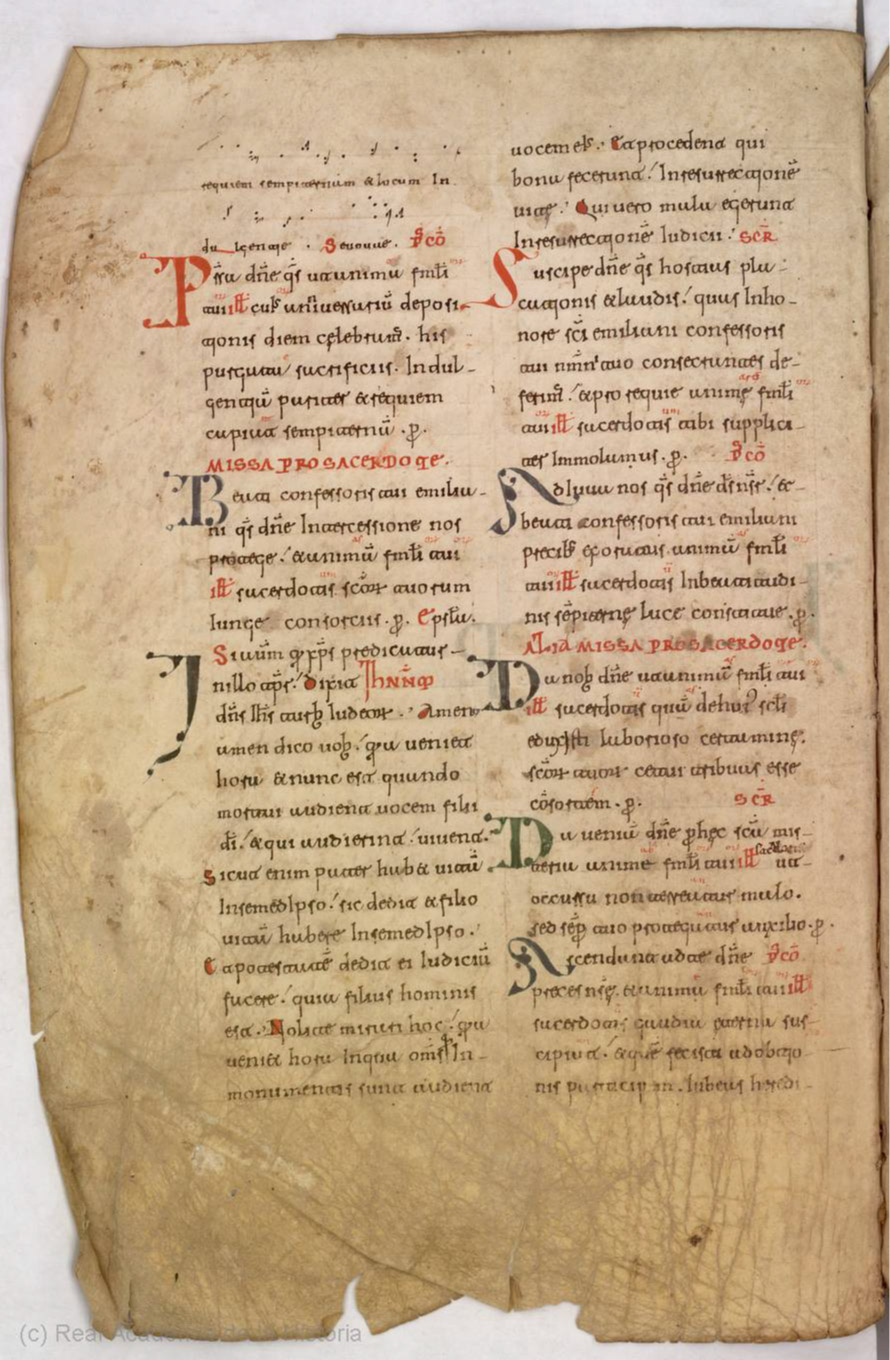 requiem sempiternum & locum In
dulgentie . Seuouae . P̄cō
P̄sta dn̄e qs̄ ut animam fmłi
tui ill̄ cuꝰ anniuersariū deposi
tionis diem celebram̄. his
purgata sacrificiis. Indul-
gentiā pariter & requiem
capiat sempiternā. p̄.
MISSA PRO SACERDOTE.
Beati confessoris tui emilia-
ni qs̄ dn̄e Intercessione nos
protege. & animā fmłi tui
ill̄ sacerdotis scōꝝ tuorum
Iunge consortiis. p̄. Epsła.
Si autem xp̄s predicatur
In illo tp̄r. dixit Ihnn̄
dn̄s Ihs̄ turbis Iudeoꝝ. Amen
amen dico uob. qa uenit
hora & nunc est quando
mortui audient uocem filii
di. & qui audierint. uiuent.
Sicut enim pater hab& uitā
In semedIpso. sic dedit & filio
uitā habere In semedIpso.
Et potestatē dedit ei Iudiciū
facere. quia filius hominis
est. Nolite mirari hoc. qa
uenit hora In qua om̄s In
monumentis sunt audient
uocem eꝰ. Et procedent qui
bona fecerunt. In resurrectionē
uitę. Qui uero mala egerunt
In resurrectionē Iudicii. SCR̄
Suscipe dn̄e qs̄ hostias pla-
cationis & laudis. quas In ho-
nore sc̄i emiliani confessoris
tui nomini tuo consecrantes de-
ferim̄. & pro requie anime fmłi
tui ill̄ sacerdotis tibi supplica-
tes Immolamus. p̄. P̄cō
Adiuua nos qs̄ dn̄e ds̄ nsr̄. &
beati confessoris tui emiliani
precibꝰ exoratus animā fmłi
tui ill̄ sacerdotis In beatitudi-
nis sēpiternę luce constitue. p̄.
ALIA MISSA PRO SACERDOTE.
Da nob dn̄e ut animam fmłi tui
ill̄ sacerdotis quā de huiꝰ scłi
eduxisti laborioso certamine.
scōꝝ tuoꝝ cetui tribuas esse
cōsortem. p̄. SCR̄
Da ueniā dn̄e p̄ hęc scā mis-
teria anime fmłi tui ill̄ sacerdotis ut a
occursu non terreatur malo.
sed sēp tuo protegatur auxilio. p̄.
Ascendant ad te dn̄e P̄cō
preces nr̄ę. & animā fmłi tui ill̄
sacerdotis gaudia eterna sus-
cipiat. & quē fecisti adobtio
nis participem. Iubeas heredi-